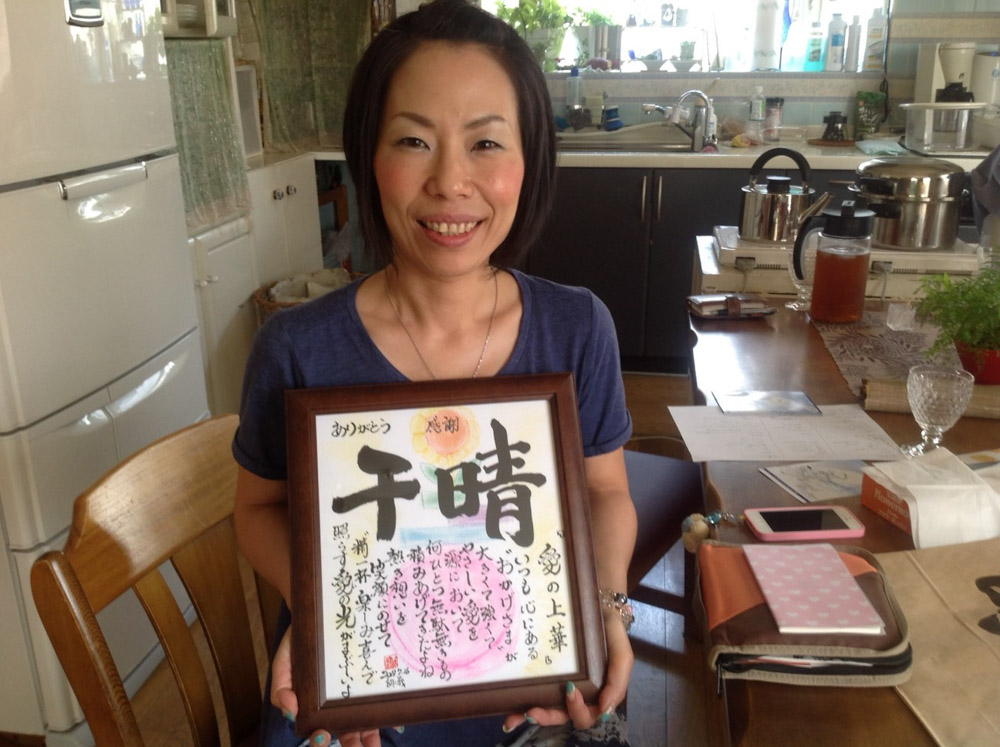 ありがとう
感謝
千晴
愛の上華
いつも心にある
"おかげさま"が
大きくて強くて
やさしい愛を
源において
何ひとつ無駄無きもの
積みあげてきたよね
熱き想いを
笑顔にのせて
精一杯楽しみ喜んで
照らす愛の光がまぶしいよ